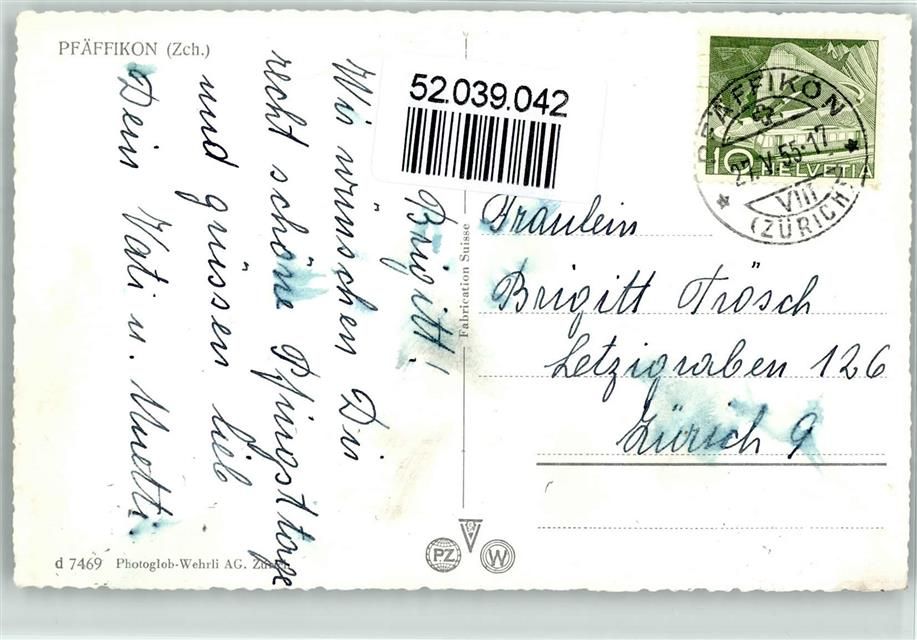 PFÄFFIKON (Zch.)
52.039.042
Brigitt!
Wir wünschen Dir
recht schöne Pfingsttage
und grüssen lieb
Dein Vati u. Muetti.
Fabrication Suisse
10 HELVETIA
PFÄFFIKON
27.V.55-17
VIII
(ZÜRICH)
Fräulein
Brigitt Trösch
Letzigraben 126
Zürich 9
d 7469 Photoglob-Wehrli AG.
PZ
W